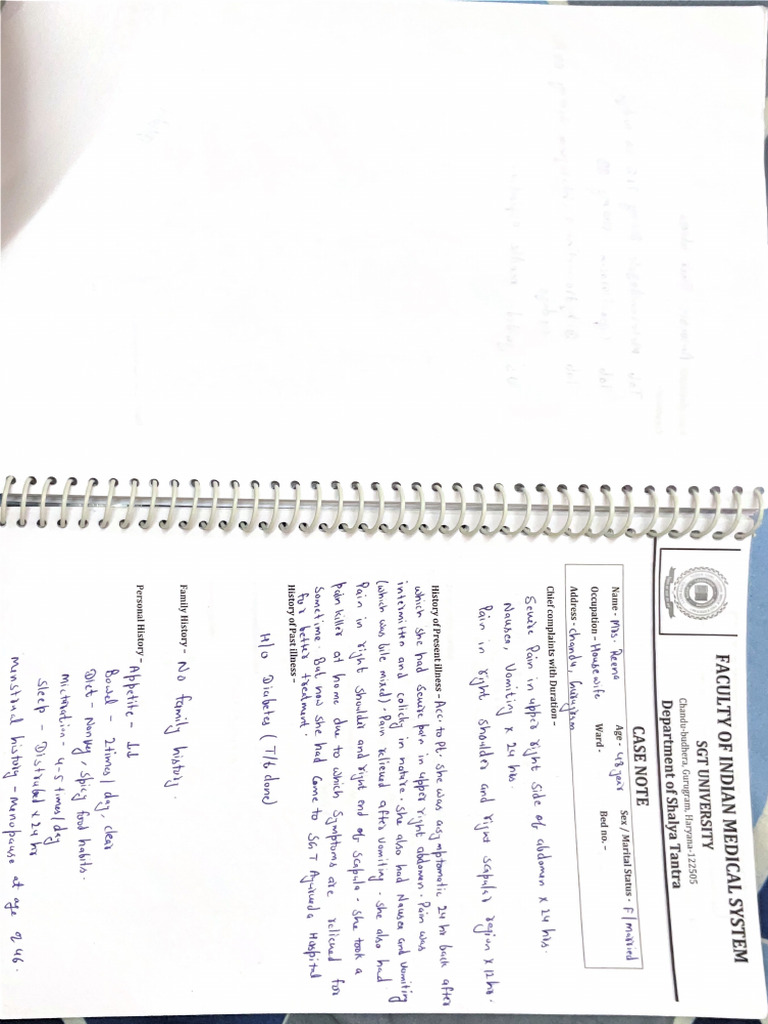 FACULTY OF INDIAN MEDICAL SYSTEM
SGT UNIVERSITY
Chandu-budhera, Gurugram, Haryana-122505
Department of Shalya Tantra
CASE NOTE
Name - Mrs. Reena Age - 48 year Sex / Marital Status - F/married
Occupation - Housewife Ward - Bed no. -
Address - Chandu, Gurugram
Chief complaints with Duration -
Severe Pain in upper right side of abdomen x 24 hrs.
Nausea, Vomiting x 24 hrs.
Pain in right shoulder and right scapular region x 12 hrs.
History of Present illness - Acc. to Pt. she was asymptomatic 24 hr back after
which she had severe pain in upper right abdomen. Pain was
intermitten and colicky in nature. she also had Nausea and vomiting
(which was bile mixed). Pain relieved after vomiting. she also had
Pain in right shoulder and right end of scapula. she took a
pain killer at home due to which symptoms are relieved for
sometime. But now she had come to SGT Ayurveda Hospital
for better treatment.
History of Past illness -
H/o Diabetes ( T/t done)
Family History - No family history.
Personal History - Appetite - ↓d
Bowel - 2 times/ day, clear
Diet - Nonveg, spicy food habits.
Micturation - 4-5 times/day
Sleep - Distrubed x 24 hr
Menstrual history - menopause at age 46.